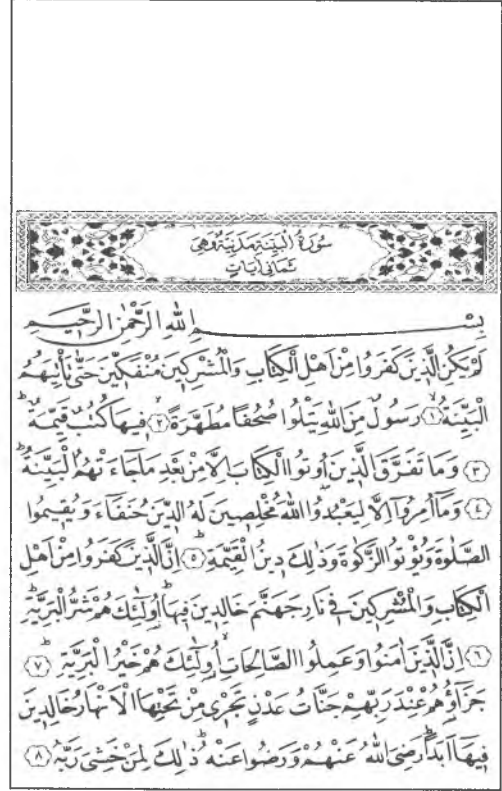 سُورَةُ الْبَيِّنَةِ مَدَنِيَّةٌ وَهِيَ
ثَمَانِي اٰيَاتٍ
بِسْمِ اللهِ الرَّحْمٰنِ الرَّحِيمِ
لَمْ يَكُنِ الَّذِينَ كَفَرُوا مِنْ اَهْلِ الْكِتَابِ وَالْمُشْرِكِينَ مُنْفَكِّينَ حَتّٰى تَأْتِيَهُمُ
الْبَيِّنَةُ ﴿١﴾ رَسُولٌ مِنَ اللهِ يَتْلُوا صُحُفًا مُطَهَّرَةً ﴿٢﴾ فِيهَا كُتُبٌ قَيِّمَةٌ
﴿٣﴾ وَمَا تَفَرَّقَ الَّذِينَ اُوتُوا الْكِتَابَ اِلَّا مِنْ بَعْدِ مَا جَاءَتْهُمُ الْبَيِّنَةُ
﴿٤﴾ وَمَا اُمِرُوا اِلَّا لِيَعْبُدُوا اللهَ مُخْلِصِينَ لَهُ الدِّينَ حُنَفَاءَ وَيُقِيمُوا
الصَّلٰوةَ وَيُؤْتُوا الزَّكٰوةَ وَذٰلِكَ دِينُ الْقَيِّمَةِ ﴿٥﴾ اِنَّ الَّذِينَ كَفَرُوا مِنْ اَهْلِ
الْكِتَابِ وَالْمُشْرِكِينَ فِي نَارِ جَهَنَّمَ خَالِدِينَ فِيهَا اُولٰئِكَ هُمْ شَرُّ الْبَرِيَّةِ
﴿٦﴾ اِنَّ الَّذِينَ اٰمَنُوا وَعَمِلُوا الصَّالِحَاتِ اُولٰئِكَ هُمْ خَيْرُ الْبَرِيَّةِ ﴿٧﴾
جَزَاؤُهُمْ عِنْدَ رَبِّهِمْ جَنَّاتُ عَدْنٍ تَجْرِي مِنْ تَحْتِهَا الْاَنْهَارُ خَالِدِينَ
فِيهَا اَبَدًا رَضِيَ اللهُ عَنْهُمْ وَرَضُوا عَنْهُ ذٰلِكَ لِمَنْ خَشِيَ رَبَّهُ ﴿٨﴾